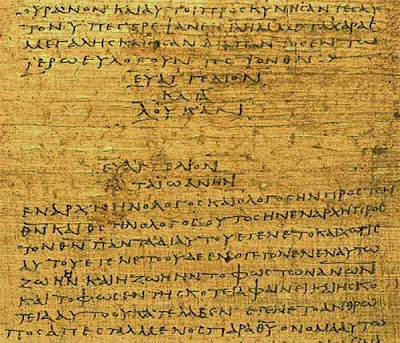 ΟΥΡΑΝΟΝΚΑΙΑΥΤΟΙΠΡΟϹΚΥΝΗϹΑΝΤΕϹΑΥ
ΤΟΝΥΠΕϹΤΡΕΨΑΝΕΙϹ ΜΕΤΑΧΑΡΑϹ
ΜΕΓΑΛΗϹΚΑΙΗϹΑΝΔΙΑΠΑΝΤΟϹΕΝΤΩ
ΙΕΡΩΕΥΛΟΓΟΥΝΤΕϹΤΟΝΘΝ
ΕΥΑΓΓΕΛΙΟΝ
ΚΑΤΑ
ΛΟΥΚΑΝ
ΕΥΑΓΓΕΛΙΟΝ
ΚΑΤΑΪΩΑΝΗΝ
ΕΝΑΡΧΗΗΝΟΛΟΓΟϹΚΑΙΟΛΟΓΟϹΗΝΠΡΟϹΤΟΝ
ΘΝΚΑΙΘϹΗΝΟΛΟΓΟϹΟΥΤΟϹΗΝΕΝΑΡΧΗΠΡΟϹ
ΤΟΝΘΝΠΑΝΤΑΔΙΑΥΤΟΥΕΓΕΝΕΤΟΚΑΙΧΩΡΙϹ
ΑΥΤΟΥΕΓΕΝΕΤΟΟΥΔΕΕΝΟΓΕΓΟΝΕΝΕΝΑΥΤΩ
ΖΩΗΗΝΚΑΙΗΖΩΗΗΝΤΟΦΩϹΤΩΝΑΝΩΝ
ΚΑΙΤΟΦΩϹΕΝΤΗϹΚΟΤΕΙΑΦΑΙΝΕΙΚΑΙΗϹΚΟ
ΤΕΙΑΑΥΤΟΟΥΚΑΤΕΛΑΒΕΝΕΓΕΝΕΤΟΑΝΘΡΩ
ΠΟϹΑΠΕϹΤΑΛΜΕΝΟϹΠΑΡΑΘΥΟΝΟΜΑΑΥΤΩ